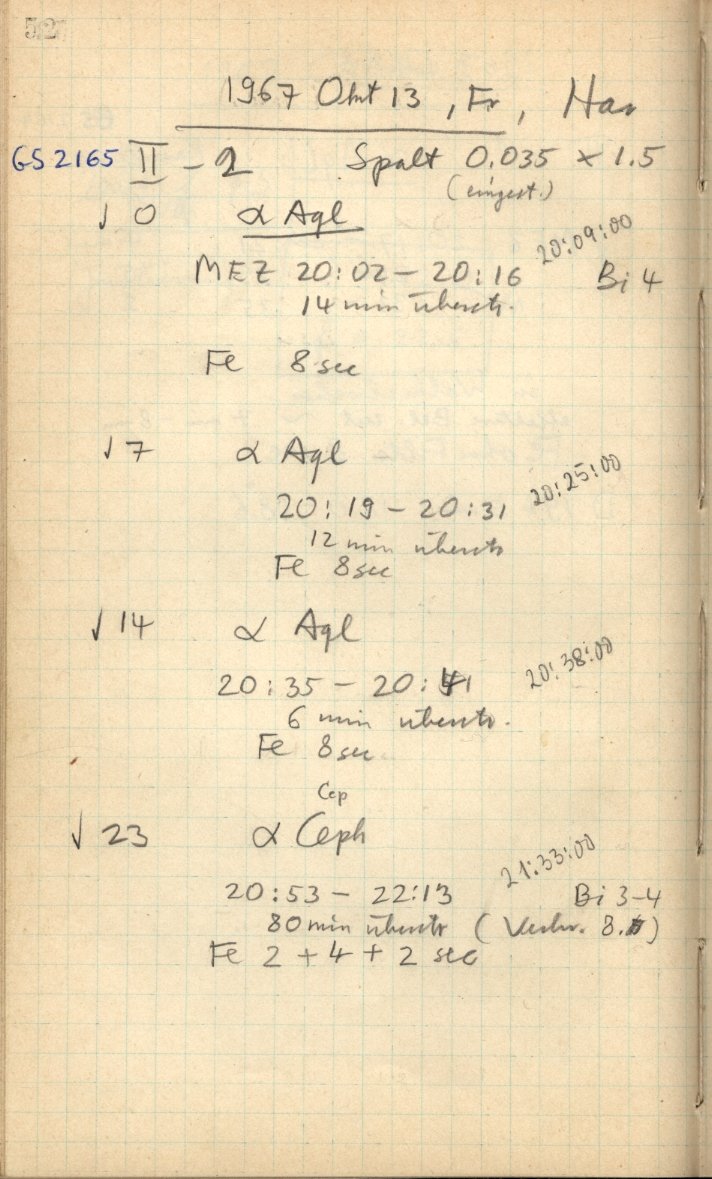 52
1967 Okt 13, Fr, Hav
GS 2165 II - 2 Spalt 0.035 × 1.5
(eingest.)
√ 0 α Aql
20:09:00
MEZ 20:02 – 20:16 Bi 4
14 min überstr.
Fe 8 sec
√ 7 α Aql
20:25:00
20:19 – 20:31
12 min überstr
Fe 8 sec
√ 14 α Aql
20:38:00
20:35 – 20:41
6 min überstr.
Fe 8 sec
Cep
√ 23 α Ceph
21:33:00
20:53 – 22:13 Bi 3-4
80 min überstr ( 8. )
Fe 2 + 4 + 2 sec